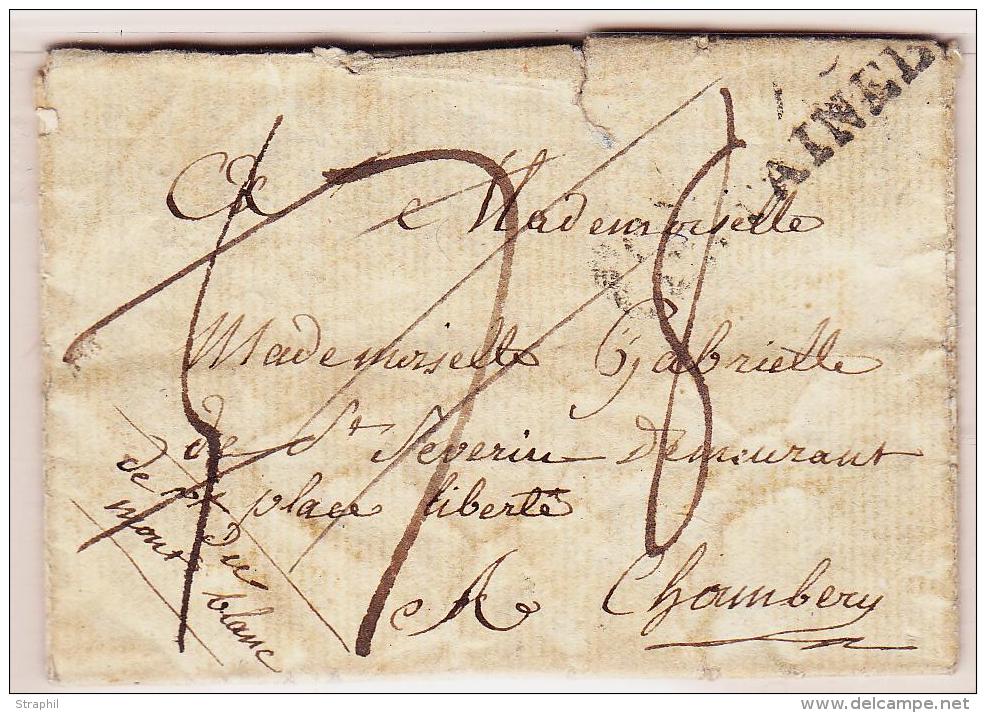 Mademoiselle
Mademoiselle Gabrielle
de St Severin Demeurant
place liberté
A Chambery
dept du
mont blanc
AINED
Straphil
www.delcampe.net